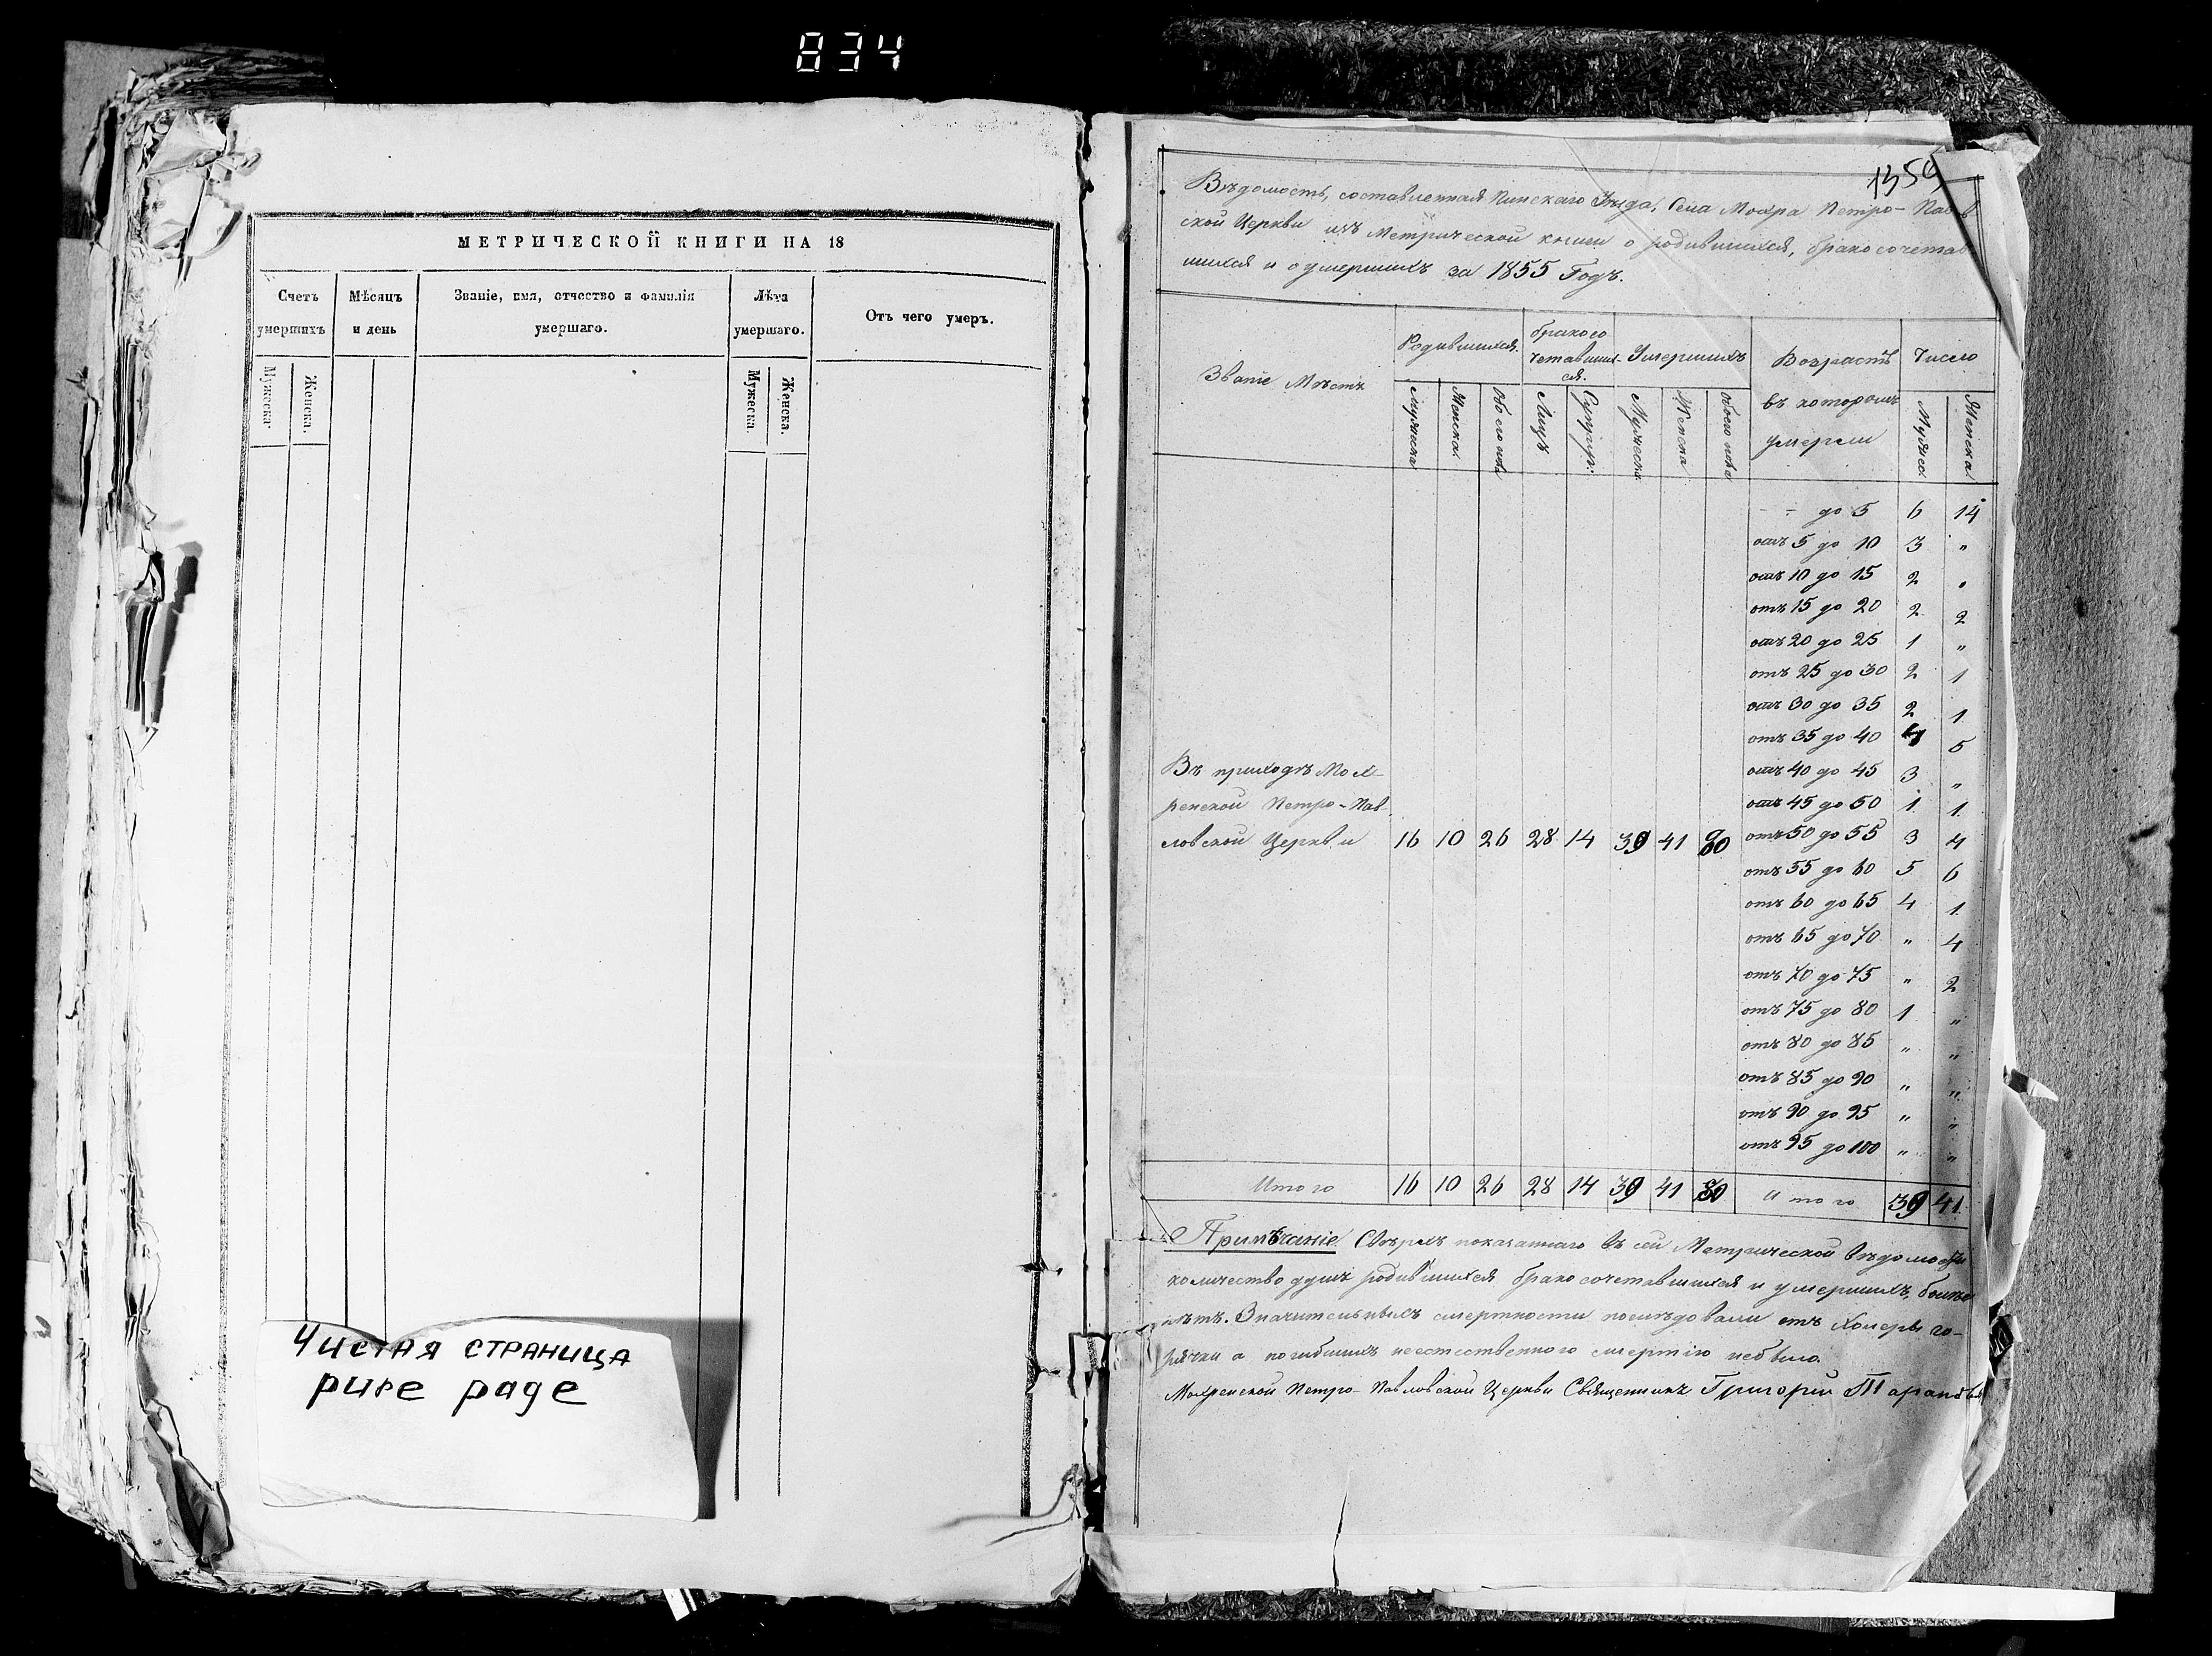 834
МЕТРИЧЕСКОЙ КНИГИ НА 18
Счетъ умершихъ
Мѣсяцъ и день
Званіе, имя, отчество и фамилія умершаго.
Лѣта умершаго.
Отъ чего умеръ.
Мужеска.
Женска.
Мужеска.
Женска.
Чистая страница
pure page
1359
Вѣдомость, составленная Пинскаго Уѣзда, Села Мохра Петро-Павлов
ской Церкви изъ Метрической книги о родившихся, бракосочетав
шихся и о умершихъ за 1855 Годъ.
Званіе Мѣстъ
Родившихся.
бракосо
четавших
ся.
Умершихъ
Возрастъ
въ которомъ
умерли
Число
Мужеска
Женска.
Обоего пола
Лицъ
Супруж:
Мужеска
Женска
Обоего пола
Мужес.
Женска
– до 5 6 14
отъ 5 до 10 3 "
отъ 10 до 15 2 "
отъ 15 до 20 2 2
отъ 20 до 25 1 "
отъ 25 до 30 2 1
отъ 30 до 35 2 1
отъ 35 до 40 5
отъ 40 до 45 3 "
отъ 45 до 50 1 1
отъ 50 до 55 3 4
отъ 55 до 60 5 6
отъ 60 до 65 4 1
отъ 65 до 70 " 4
отъ 70 до 75 " 2
отъ 75 до 80 1 "
отъ 80 до 85 " "
отъ 85 до 90 " "
отъ 90 до 95 " "
отъ 95 до 100 " "
Въ приходѣ Мох-
ренской Петро-Пав
ловской Церкви 16 10 26 28 14 39 41 80
Итого 16 10 26 28 14 39 41 80 Итого 39 41
Примѣчаніе. Свѣрхъ показаннаго въ сей Метрической вѣдомости
количество душъ родившихся бракосочетавшихся и умершихъ, болѣе
нѣтъ. Значительныхъ смертности послѣдовали отъ Холеры го-
рячки а погибшихъ неестественного смертію небыло.
Мохренской Петро-Павловской Церкви Священникъ Григорій